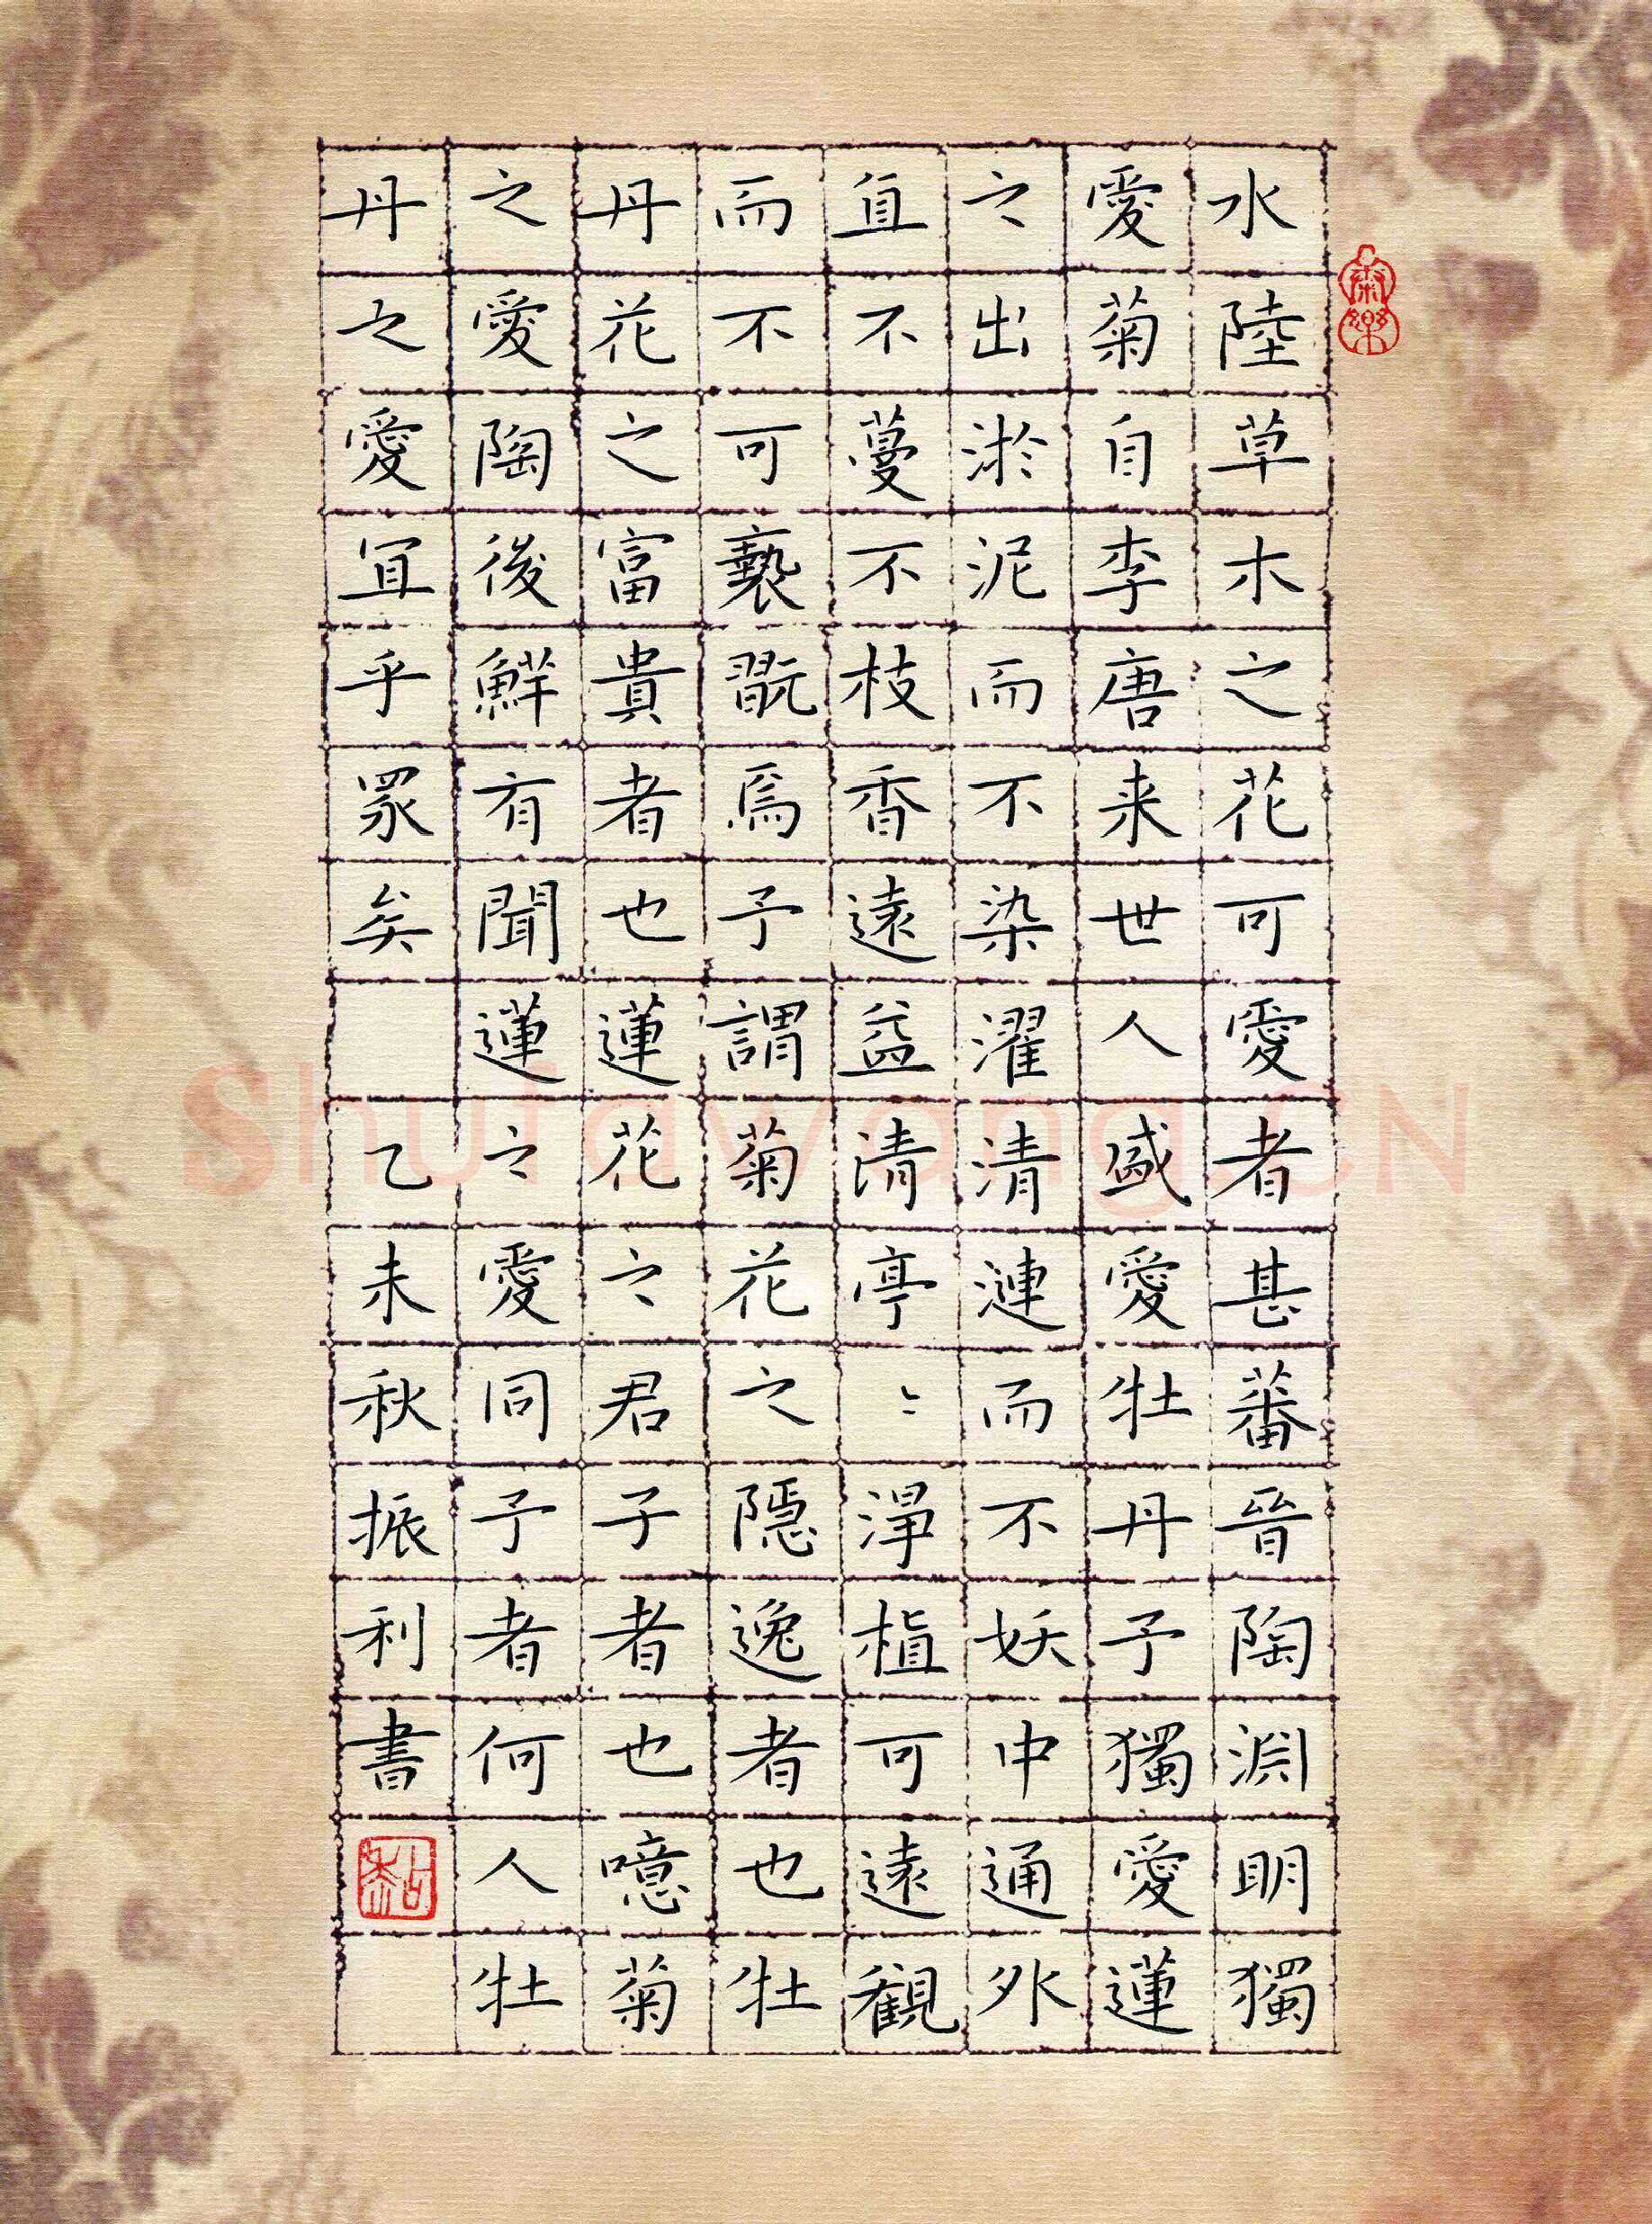 水陸草木之花可愛者甚蕃晉陶淵明獨
愛菊自李唐来世人盛愛牡丹予獨愛蓮
之出淤泥而不染濯清漣而不妖中通外
直不蔓不枝香遠益清亭〻淨植可遠觀
而不可褻翫焉予謂菊花之隱逸者也牡
丹花之富貴者也蓮花之君子者也噫菊
之愛陶後鮮有聞蓮之愛同予者何人牡
丹之愛宜乎眾矣 乙未秋振利書
Shufawang.CN